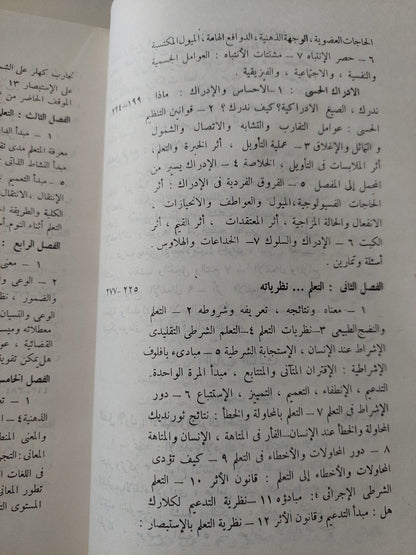 الحاجات العضوية، الوجهة الذهنية، الدوافع الهامة، الميول المكتسبة
٦ – حصر الإنتباه ٧ – مشتتات الأنتباه : العوامل الجسمية
والنفسية ، والاجتماعية ، والفيزيقية .
الادراك الحسى : ١ – الاحساس والإدراك : ماذا ١٩٩–٢٢٤
ندرك ، الصيغ الادراكية؟ كيف ندرك ؟ ٢ – قوانين التنظيم
الحسى : عوامل التقارب والتشابه والاتصال والشمول
والتماثل والإغلاق ٣ – عملية التأويل ، أثر الخبرة والتعلم،
أثر الملابسات فى التأويل ، الخلاصة ٤ – الإدراك يسير من
المجمل إلى المفصل ٥ – الفروق الفردية فى الإدراك : أثر
الحاجات الفسيولوجية، الميول والعواطف والانحيازات .
الانفعال والحالة المزاجية ، أثر المعتقدات ، أثر القيم ، أثر
الكبت ٦ – الإدراك والسلوك ٧ – الخداعات والهلاوس .
أسئلة وتمارين .
الفصل الثانى : التعلم ... نظرياته ٢٢٥–٢٧٧
١ – معناه ونتائجه ، تعريفه وشروطه ٢ – التعلم
والنضج الطبيعى ٣ – نظريات التعلم ٤ – التعلم الشرطى التقليدى
الإشراط عند الإنسان ، الإستجابة الشرطية ٥ – مبادىء بافلوف
الإشراطية : الإقتران المتآنى والمتتابع ، مبدأ المرة الواحدة.
التدعيم ، الإنطفاء ، التعميم ، التمييز ، الإستتباع ٦ – دور
الإشراط فى التعلم ٧ – التعلم بالمحاولة والخطأ : نتائج ثورنديك
المحاولة والخطأ عند الإنسان – الفأر فى المتاهة ، الإنسان والمتاهة
٨ – دور المحاولات والأخطاء فى التعلم ٩ – كيف تؤدى
المحاولات والإخطاء إلى التعلم : قانون الأثر ١٠ – التعلم
الشرطى الإجرائى : مبادؤه ١١ – نظرية التدعيم لكلارك
هل : مبدأ التدعيم وقانون الأثر ١٢ – نظرية التعلم بالإستبصار :
تجارب كهلر على الشم
على الإستبصار ١٣
الموقف الحاضر من
الفصل الثالث : التعلم
١ – مبدأ الدا
معرفة المتعلم مدى تق
مبدأ النشاط الذاتى
٥ – مبدأ التعميم
الإنتقال ، الانتقال
الكلية والطريقة ا
التعلم أثناء النوم . أ
الفصل الرابع :
١ – معنى
٢ – الوعى و
والضمور ،
الوعى والنسيان
معطلاته وميس
القضائية
هل يمكن تقوية
الفصل الخامس
١ –
الذهنية ٤ – ا
والمعنى المنط
المعانى : التجر
فى اللغات ا
تطور المعانى
المستوى الث